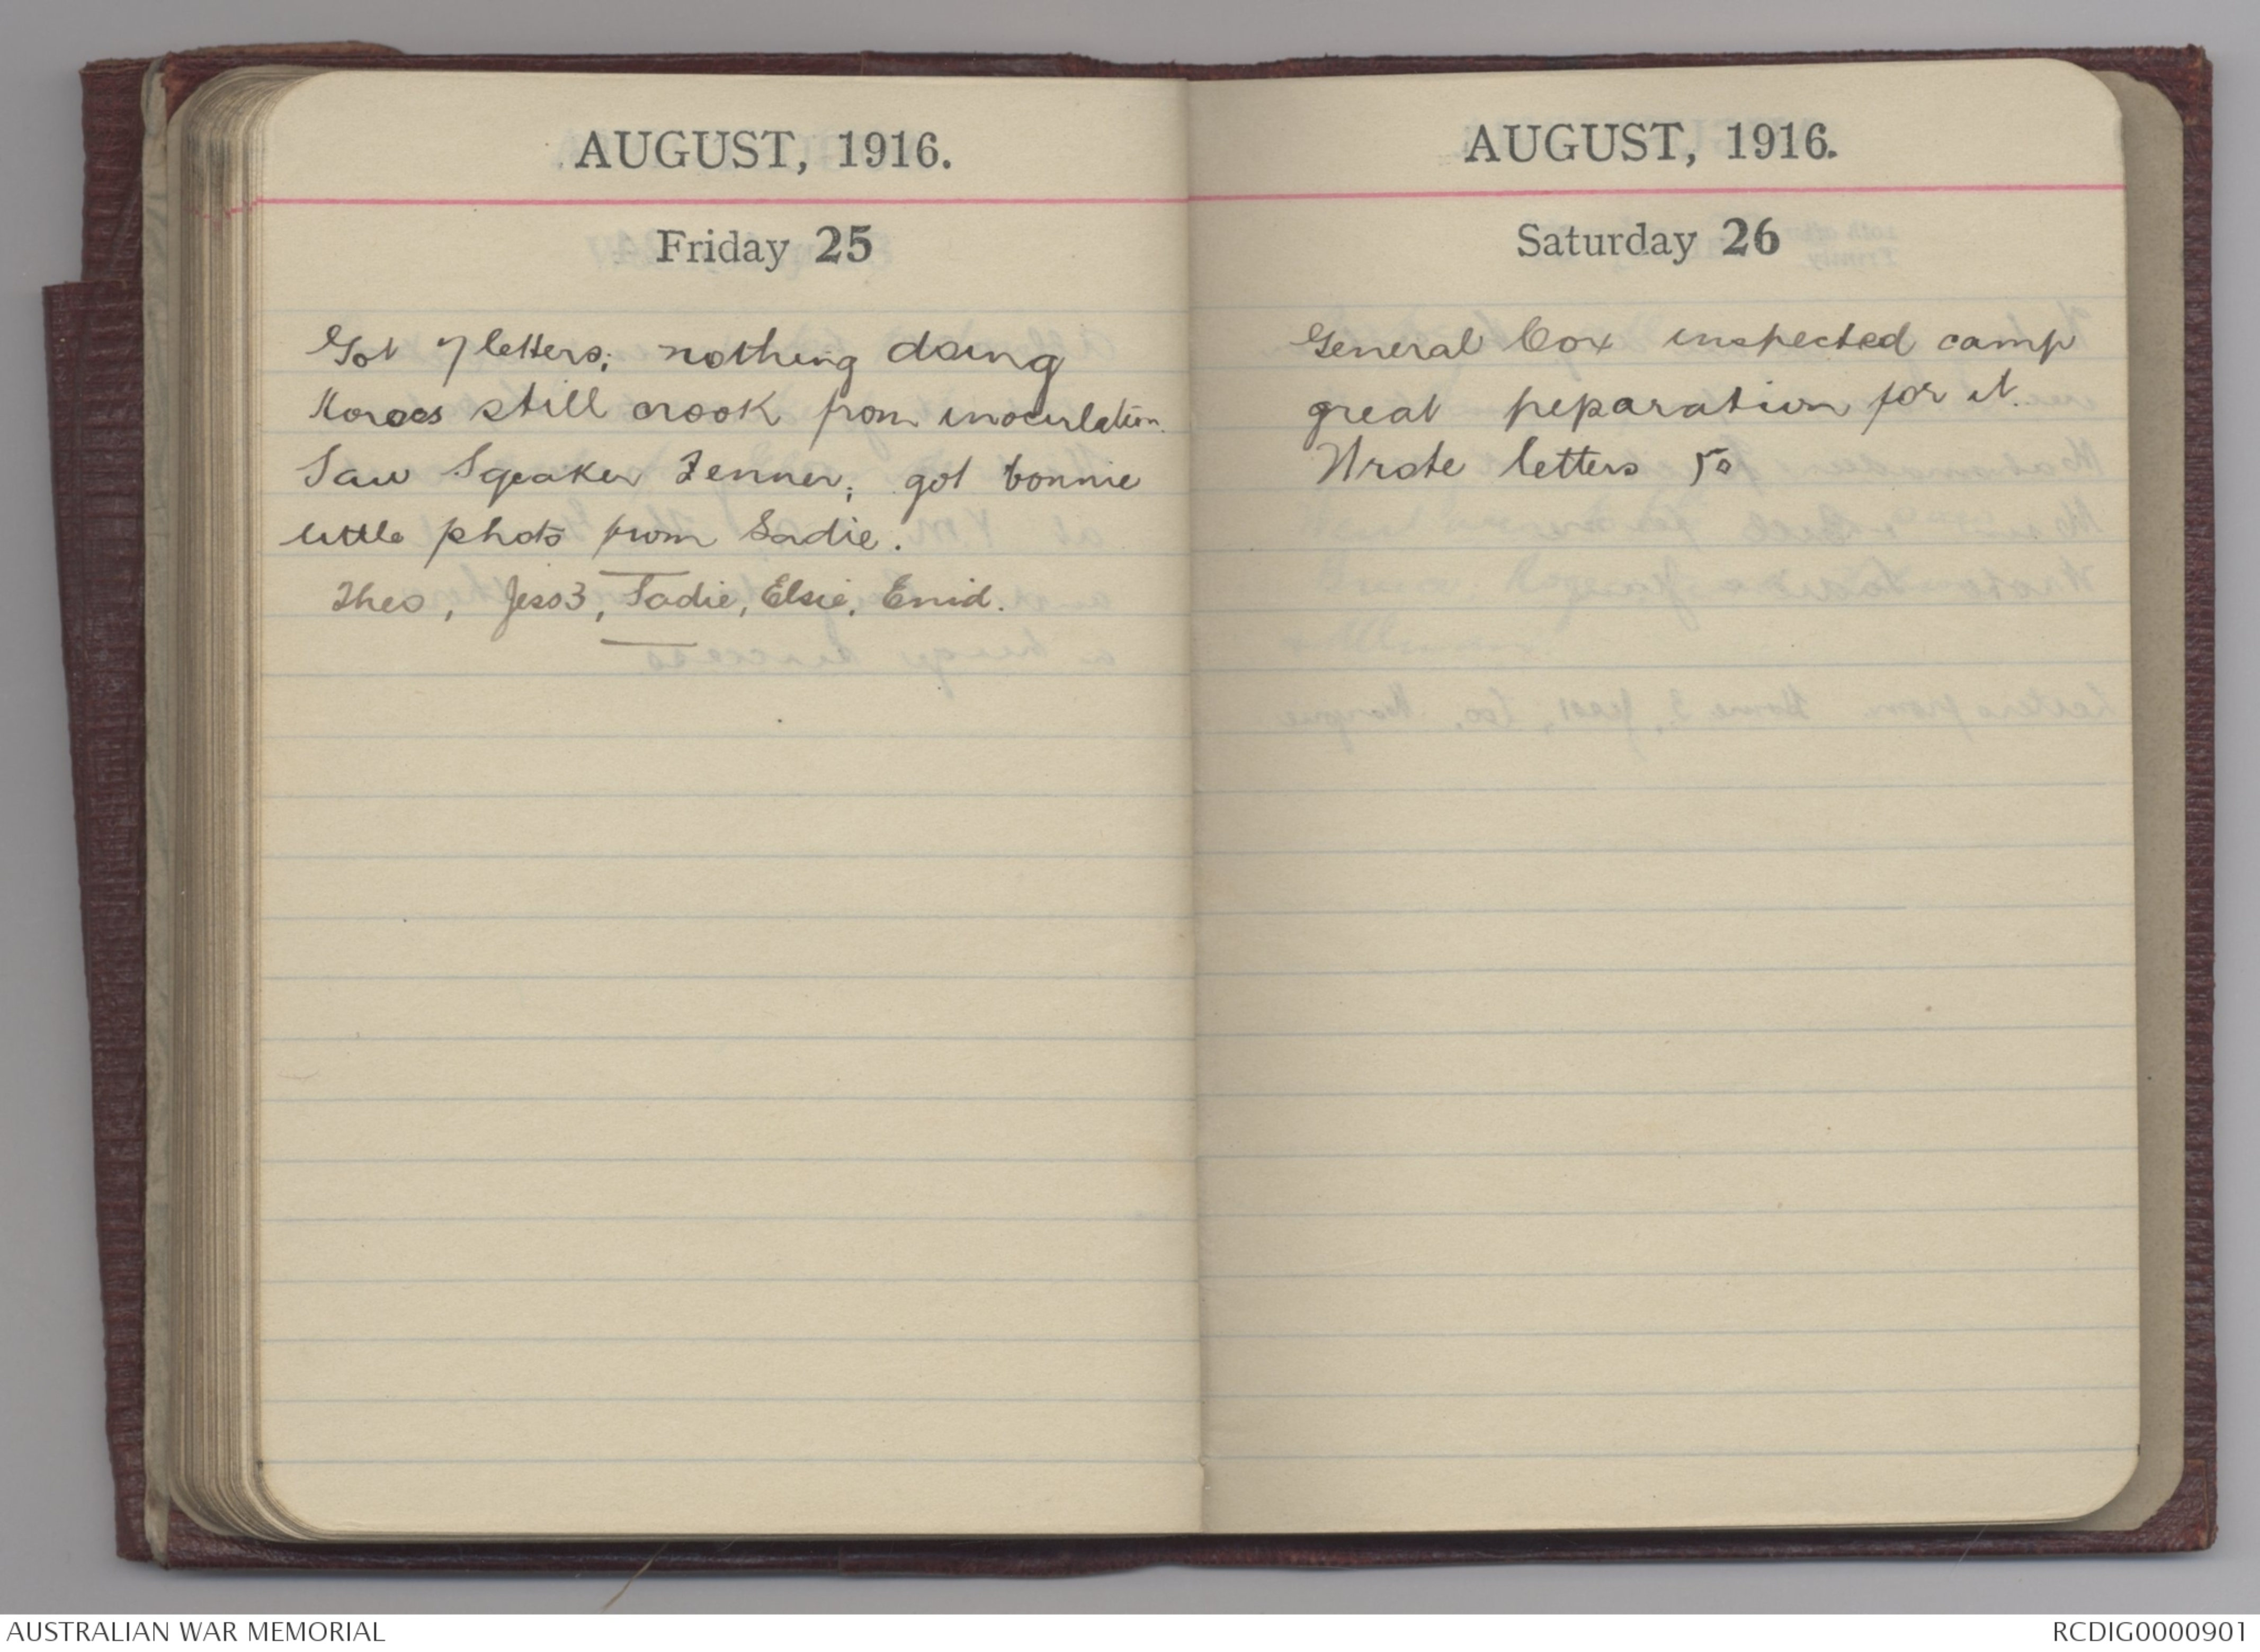 AUGUST, 1916.
Friday 25
Got 7 letters; nothing doing
still crook from inoculation.
Saw Sqeaker Zenner; got bonnie
little photo from Sadie.
Theo, Jess 3, Sadie, Elsie, Enid.
AUGUST, 1916.
Saturday 26
General Cox inspected camp
great peparation for it.
Wrote letters
AUSTRALIAN WAR MEMORIAL
RCDIG0000901